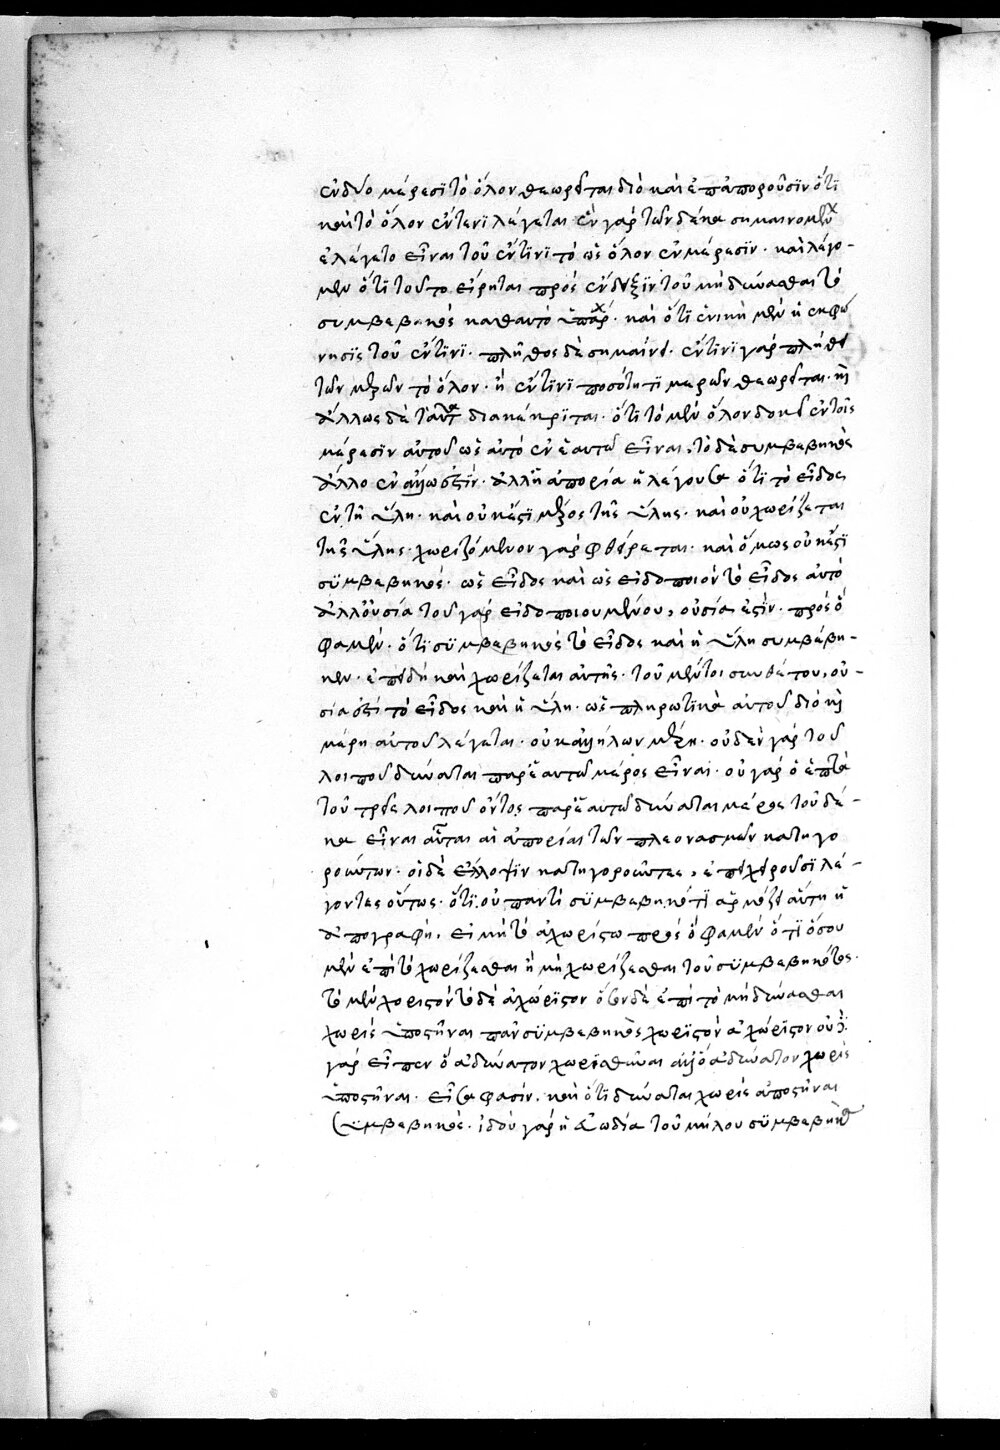 ἐν δύο μέρεσι τὸ ὅλον θεωρεῖται διὸ καὶ ἐπαποροῦσιν ὅτι
καὶ τὸ ὅλον ἔν τινι λέγεται ἓν γὰρ τῶν δέκα σημαινομένων
ἐλέγετο εἶναι τοῦ ἔν τινι τὸ ὡς ὅλον ἐν μέρεσιν· καὶ λέγο-
μεν ὅτι τοῦτο εἴρηται πρὸς ἔνδειξιν τοῦ μὴ δύνασθαι τὸ
συμβεβηκὸς καθ αυτὸ ὑπάρχειν· καὶ ὅτι ἑνικὴ μὲν ἡ ἐκφώ
νησις τοῦ ἔν τινι· πλῆθος δὲ σημαίνει· ἔν τινι γὰρ πλήθει
τῶν μερῶν τὸ ὅλον· ἢ ἔν τινι ποσότητι μερῶν θεωρεῖται· καὶ
ἄλλως δὲ ταῦτα διακέκριται· ὅτι τὸ μὲν ὅλον δοκεῖ ἐν τοῖς
μέρεσιν αὐτοῦ ὡς αὐτὸ ἐν ἑαυτῶ εἶναι, τὸ δὲ συμβεβηκὸς
ἄλλο ἐν ἄλλω ἐστίν· ἄλλη ἀπορία ἡ λέγουσα ὅτι τὸ εἶδος
ἐν τῆ ὕλη· καὶ οὐκ ἔστι μέρος τῆς ὕλης· καὶ οὐ χωρίζεται
τῆς ὕλης· χωριζόμενον γὰρ φθείρεται· καὶ ὅμως οὐκ ἔστι
συμβεβηκός· ὡς εἶδος καὶ ὡς εἰδοποιὸν τὸ εἶδος αὐτὸ
ἀλλ οὐσία τοῦ γὰρ εἰδοποιουμένου, οὐσία ἐστίν· πρὸς ὅ
φαμεν· ὅτι συμβεβηκὸς τὸ εἶδος καὶ ἡ ὕλη συμβέβη-
κεν· ἐπειδὴ καὶ χωρίζεται αὐτῆς· τοῦ μέντοι συνθέτου, οὐ-
σία ἐστὶ τὸ εἶδος καὶ ἡ ὕλη· ὡς πληρωτικὰ αὐτοῦ διὸ καὶ
μέρη αὐτοῦ λέγεται· οὐκ ἀλλήλων μέρη· οὐδὲν γὰρ τοῦ
λοιποῦ δύναται παρ ἑαυτῶ μέρος εἶναι· οὐ γὰρ ὁ ἑπτὰ
τοῦ τρεῖς λοιποῦ ὄντος παρ ἑαυτῶ δύναται μέρος τοῦ δέ-
κα εἶναι αὗται αἱ ἀπορίαι τῶν πλεονασμὸν κατηγο
ρούντων· οἱ δὲ ἔλλειψιν κατηγοροῦντες, ἐπιχειροῦσι λέ-
γοντες οὕτως· ὅτι οὐ παντὶ συμβεβηκότι ἁρμόζει αὕτη ἡ
ἀπογραφὴ, εἰ μὴ τῶ ἀχωρίστω πρὸς ὅ φαμεν ὅτι ὅσον
μὲν ἐπὶ τὸ χωρίζεσθαι ἢ μὴ χωρίζεσθαι τοῦ συμβεβηκότος·
τὸ μὲν χοριστὸν τὸ δὲ ἀχώριστον ὅσον δὲ ἐπὶ τὸ μὴ δύνασθαι
χωρὶς ὑποστῆναι πᾶν συμβεβηκὸς χωριστὸν ἀχώριστον οὐ
γὰρ εἶπεν ὃ ἀδύνατον χωρισθῆναι ἀλλ ὃ ἀδύνατον χωρὶς
ὑποστῆναι· εἶτα φασίν· καὶ ὅτι δύναται χωρὶς ἀποστῆναι
συμβεβηκός· ἰδοὺ γὰρ ἡ εὐωδία τοῦ μήλου συμβεβηκὸς